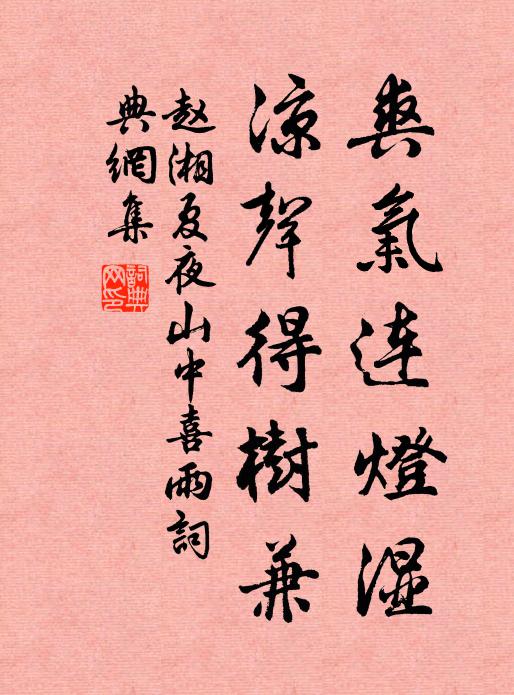 爽氣连燈湿
涼聲得樹兼
赵湘夏夜山中喜雨詞
典網集
詞典网印